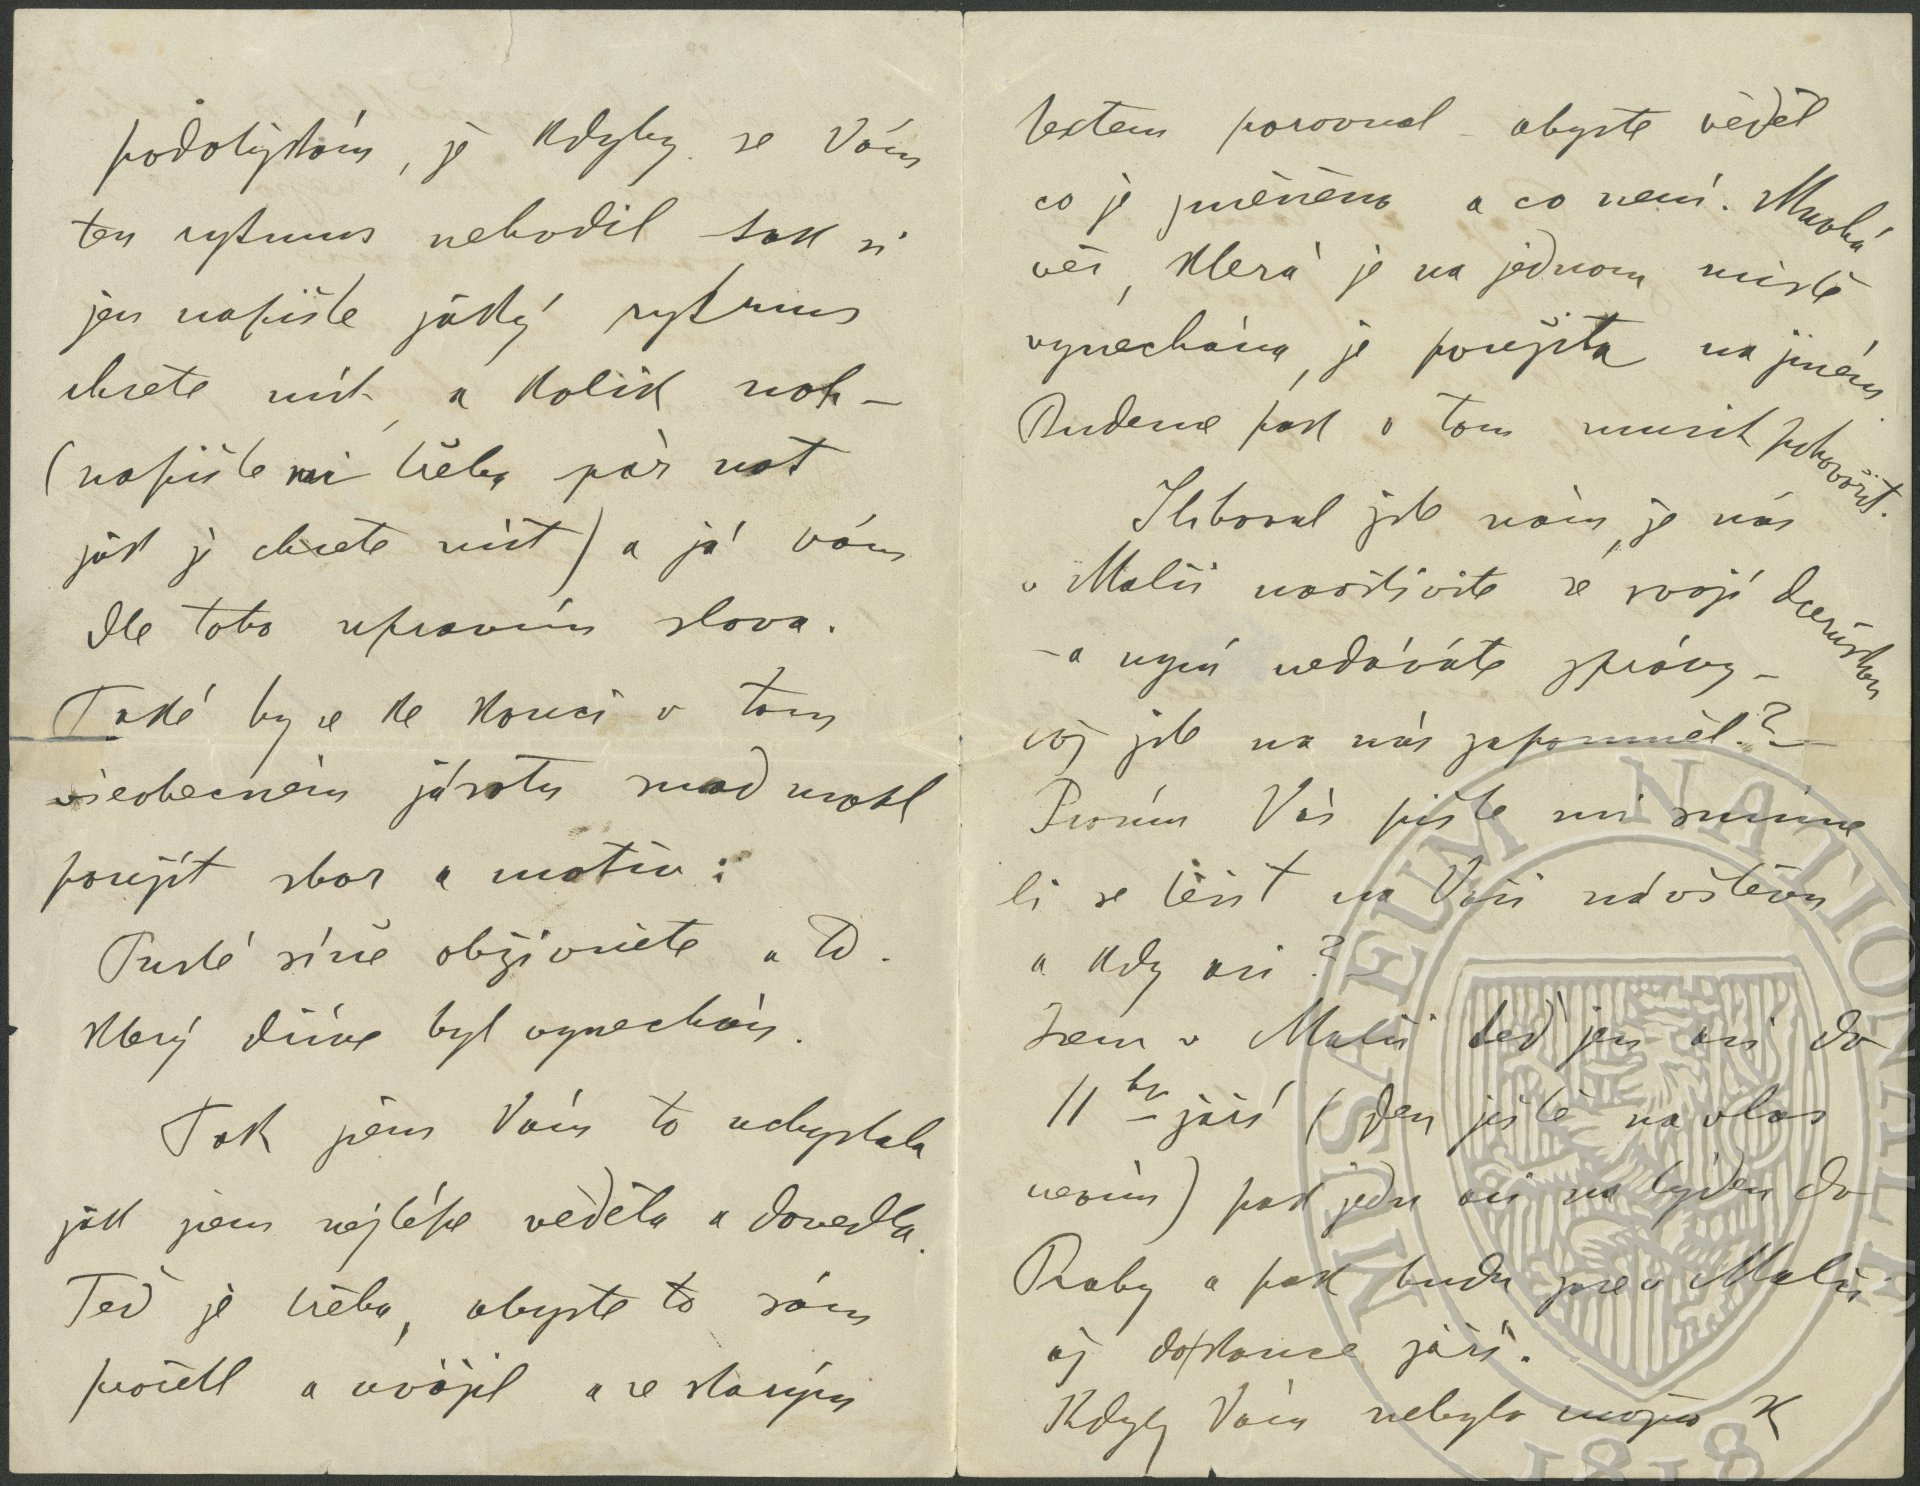 podotýkám, že kdyby se Vám
ten rytmus nehodil tak si
jen napište jáký rytmus
chcete mít a kolik not –
(napište mi třeba pár not
ják je chcete mít) a já vám
dle toho upravím slova.
Také by se ke konci v tom
všeobecném jásotu snad mohl
použít sbor a motiv:
Pusté síně obživnete a td.
který dříve byl vynechán.
Tak jsem Vám to uchystala
ják jsem nejlépe věděla a dovedla.
Teď je třeba, abyste to sám
pročetl a uvážil a se starým
textem porovnal – abyste věděl
co je změněno a co není. Mnohá
věc, která je na jednom místě
vynechána, je použita na jiném.
Budeme pak o tom musit pohovořit.
Sliboval jste nám, že nás
v Malči navštívíte se svojí dceruškou
– a nyní nedáváte zprávy –
což jste na nás zapomněl? –
Prosím Vás pište mi smíme
li se těšit na Vaši návštěvu
a kdy asi? –
Jsem v Malči teď jen asi do
11ho září (den ještě na vlas
nevím) pak jedu asi na týden do
Prahy a pak budu zase v Malči
až do konce září.
Kdyby Vám nebylo možno k
MUSAEUM NATIONALE
1818